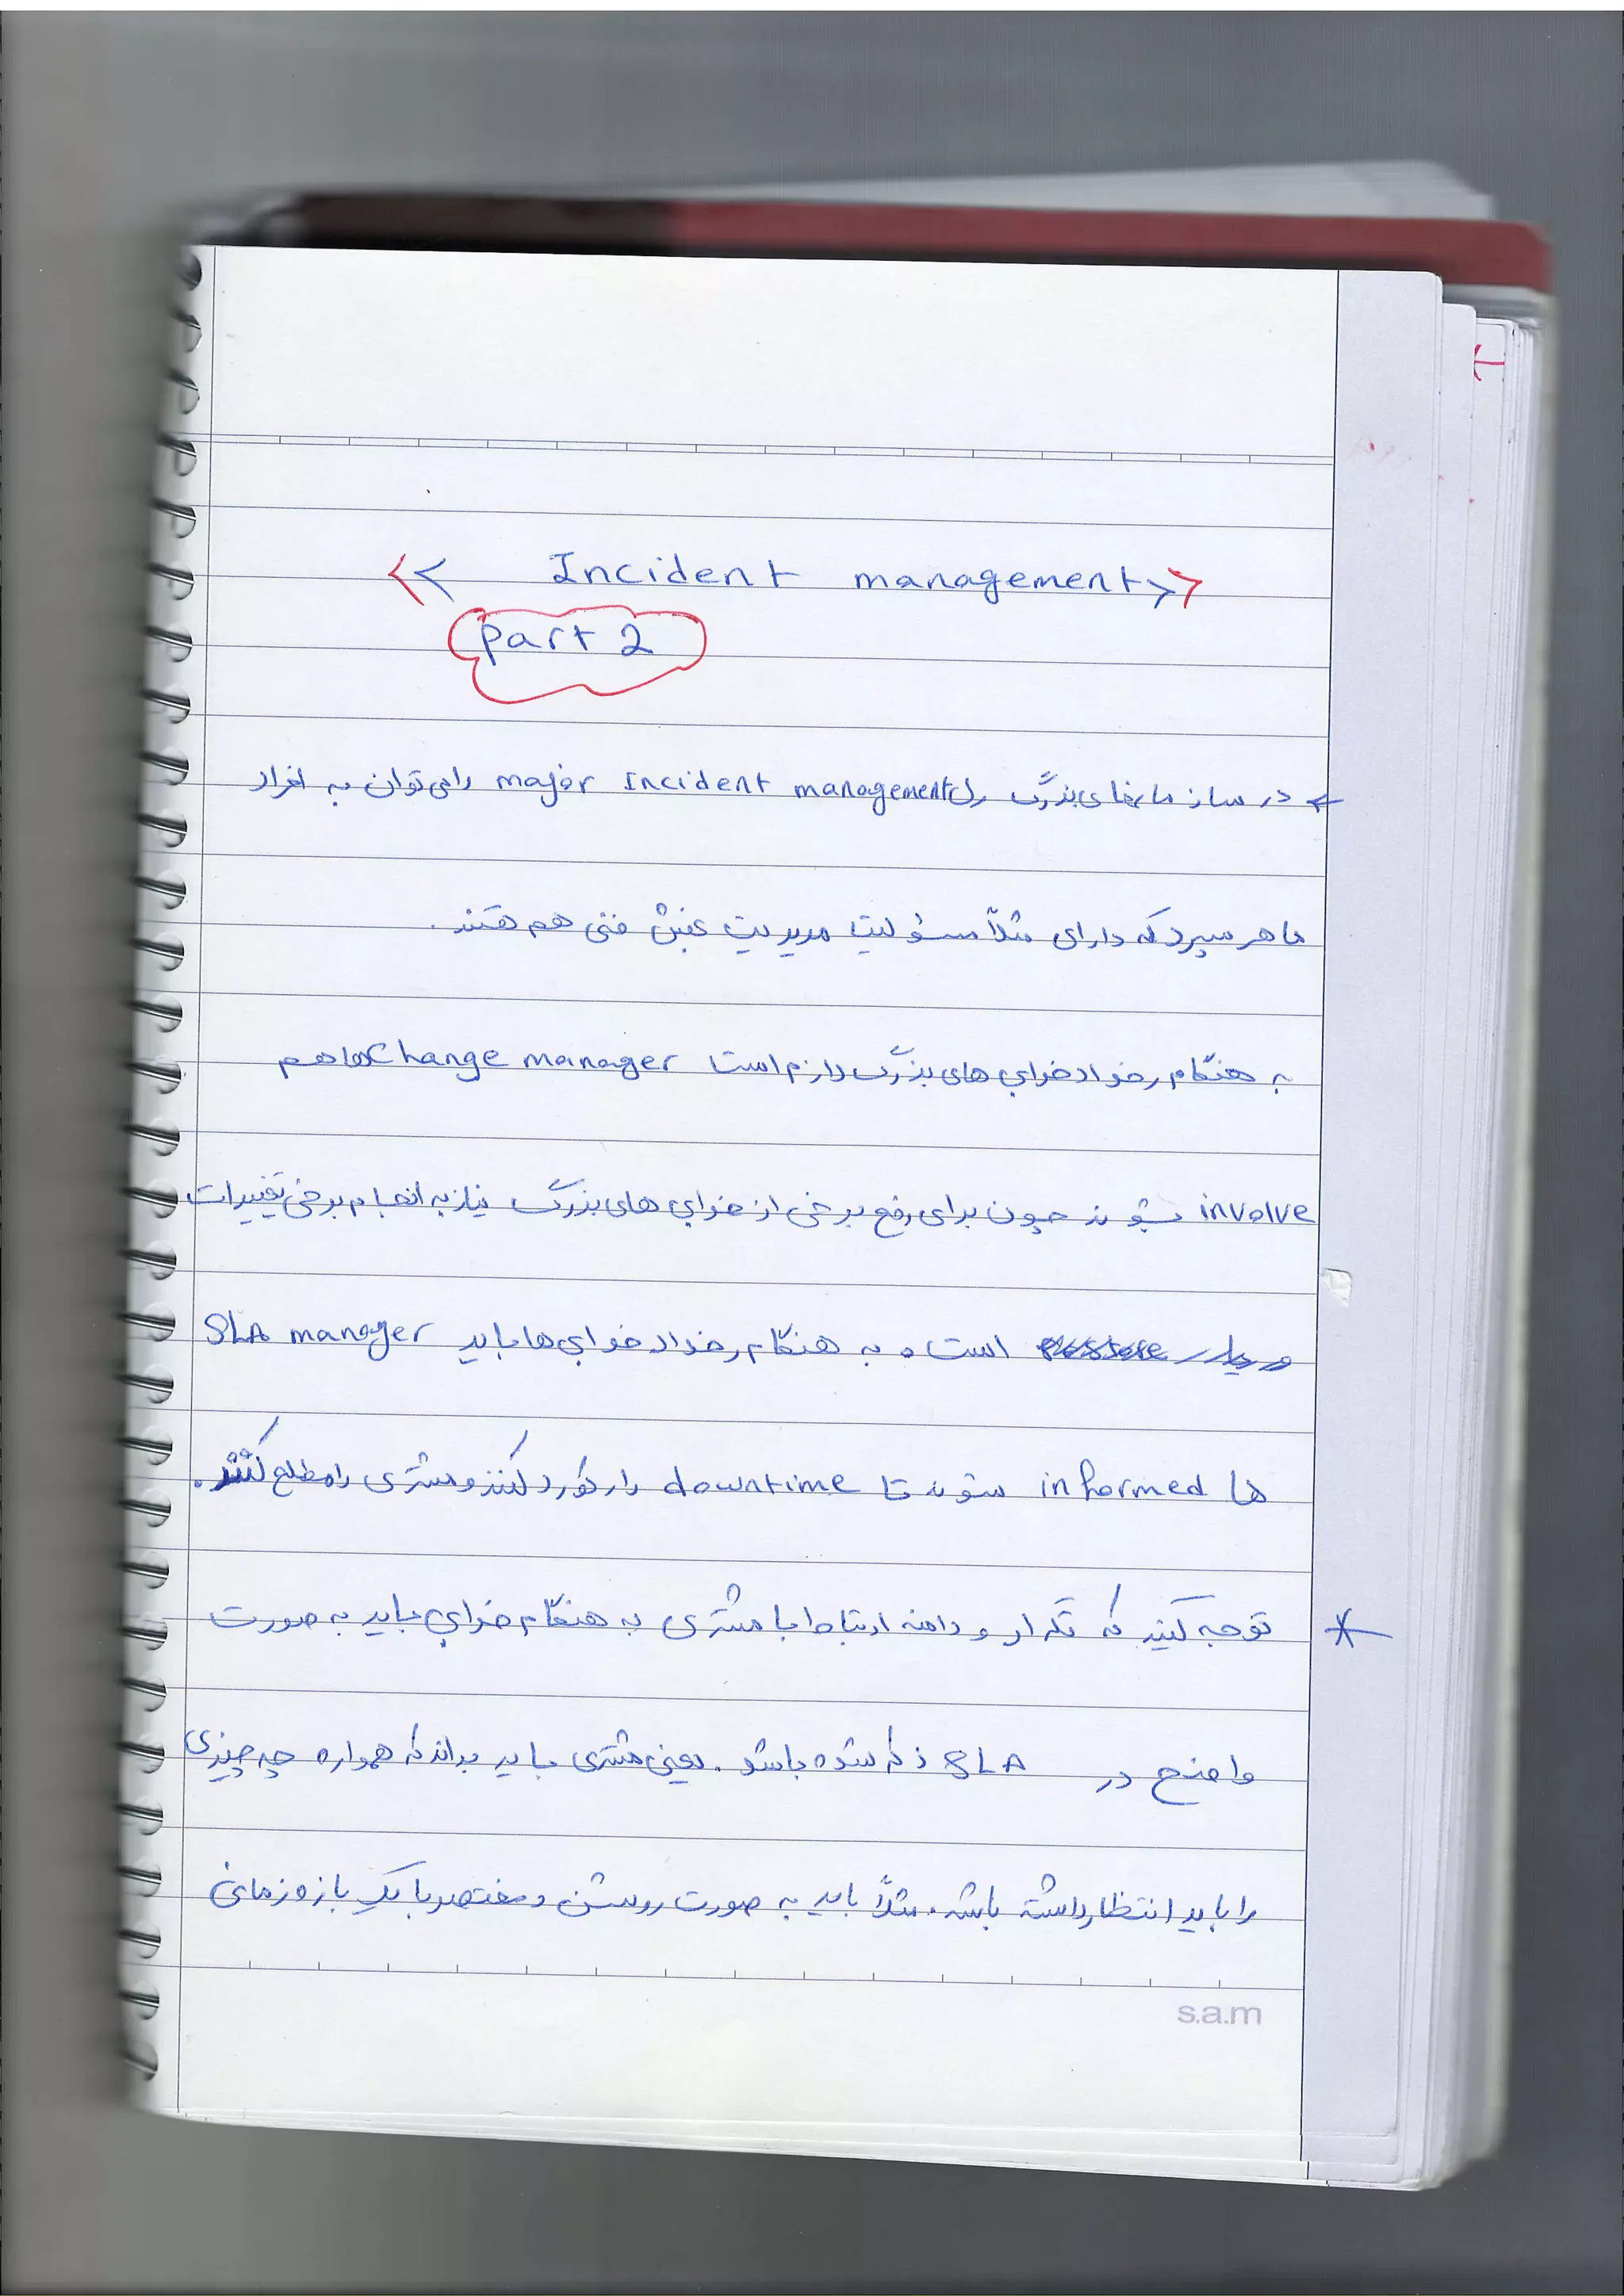 << Incident management >>
part 2
← در سازمانهای بزرگ رل major Incident management را می توان به افراد
ماهر سپرد که دارای مثلاً مسئولیت مدیریت بخش فنی هم هستند.
به هنگام رخداد خرابی های بزرگ لازم است Change manager ها هم
involve شوند چون برای رفع برخی از خرابی های بزرگ نیاز به انجام برخی تغییرات
است و به هنگام رخداد خرابی ها باید SLA manager
ها informed شوند تا downtime را رکورد کنند و مشتری را مطلع کنند.
* توجه کنید که تکرار و دامنه ارتباط با مشتری به هنگام خرابی باید به صورت
واضح در SLA ذکر شده باشد. یعنی مشتری باید بداند که همواره چه چیزی
را باید انتظار داشته باشد. مثلاً باید به صورت روشن و مختصر با یک بازه زمانی
s.a.m